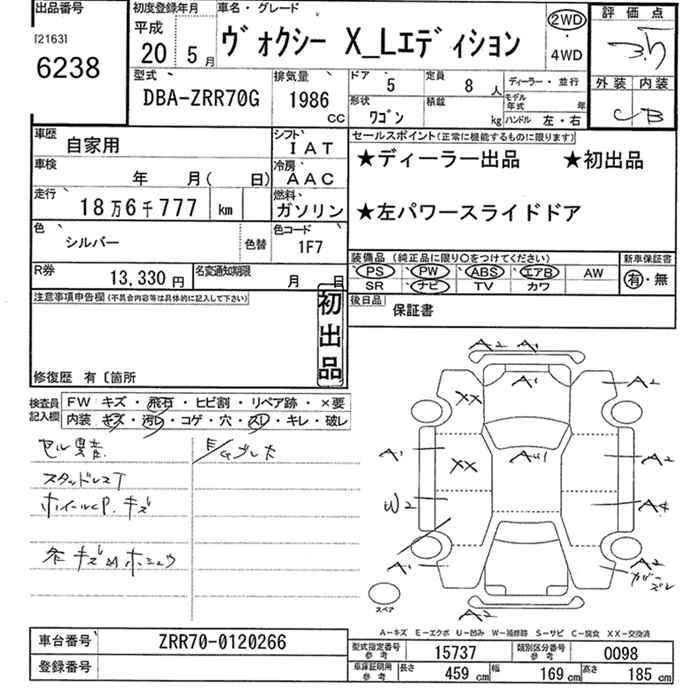 出品番号
[2163]
6238
初度登録年月
平成
20 5月
車名・グレード
ヴォクシー X_Lエディション
2WD
4WD
評価点
3.5
外装 内装
C B
型式
DBA-ZRR70G
排気量
1986 CC
ドア 5
定員 8人
ディーラー・並行
形状 ワゴン
積載 kg
モデル年式 年
ハンドル 左・右
車歴 自家用
シフト IAT
車検 年 月( 日)
冷房 AAC
走行 18万6千777 km
燃料 ガソリン
色 シルバー
色替
色コード 1F7
R券 13,330円
名変通知期限 月 日
セールスポイント(正常に機能するものに限ります)
★ディーラー出品 ★初出品
★左パワースライドドア
装備品 (純正品に限り○をつけてください)
新車保証書
PS PW ABS エアB AW
SR ナビ TV カワ
有・無
後日品 保証書
注意事項申告欄(不具合内容等は具体的に記入して下さい)
初出品
修復歴 有〔箇所
検査員記入欄
FW キズ・飛石・ヒビ割・リペア跡・×要
内装 キズ・汚レ・コゲ・穴・スレ・キレ・破レ
スタッドレスT
キズ
A2 A1
A1
XX
A2
A1
XX
AU1
A2
W2
A4
A1
A2
A2
スペア
A-キズ E-エクボ U-凹み W-補修跡 S-サビ C-腐食 XX-交換済
車台番号 ZRR70-0120266
登録番号
型式指定番号 参考 15737
類別区分番号 参考 0098
車庫証明用 参考 長さ 459cm 幅 169cm 高さ 185cm